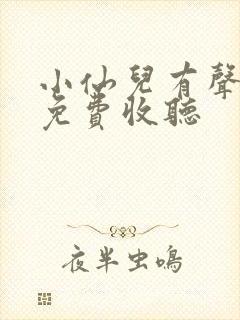 小仙兒有聲
免費收聽
夜半虫鳴